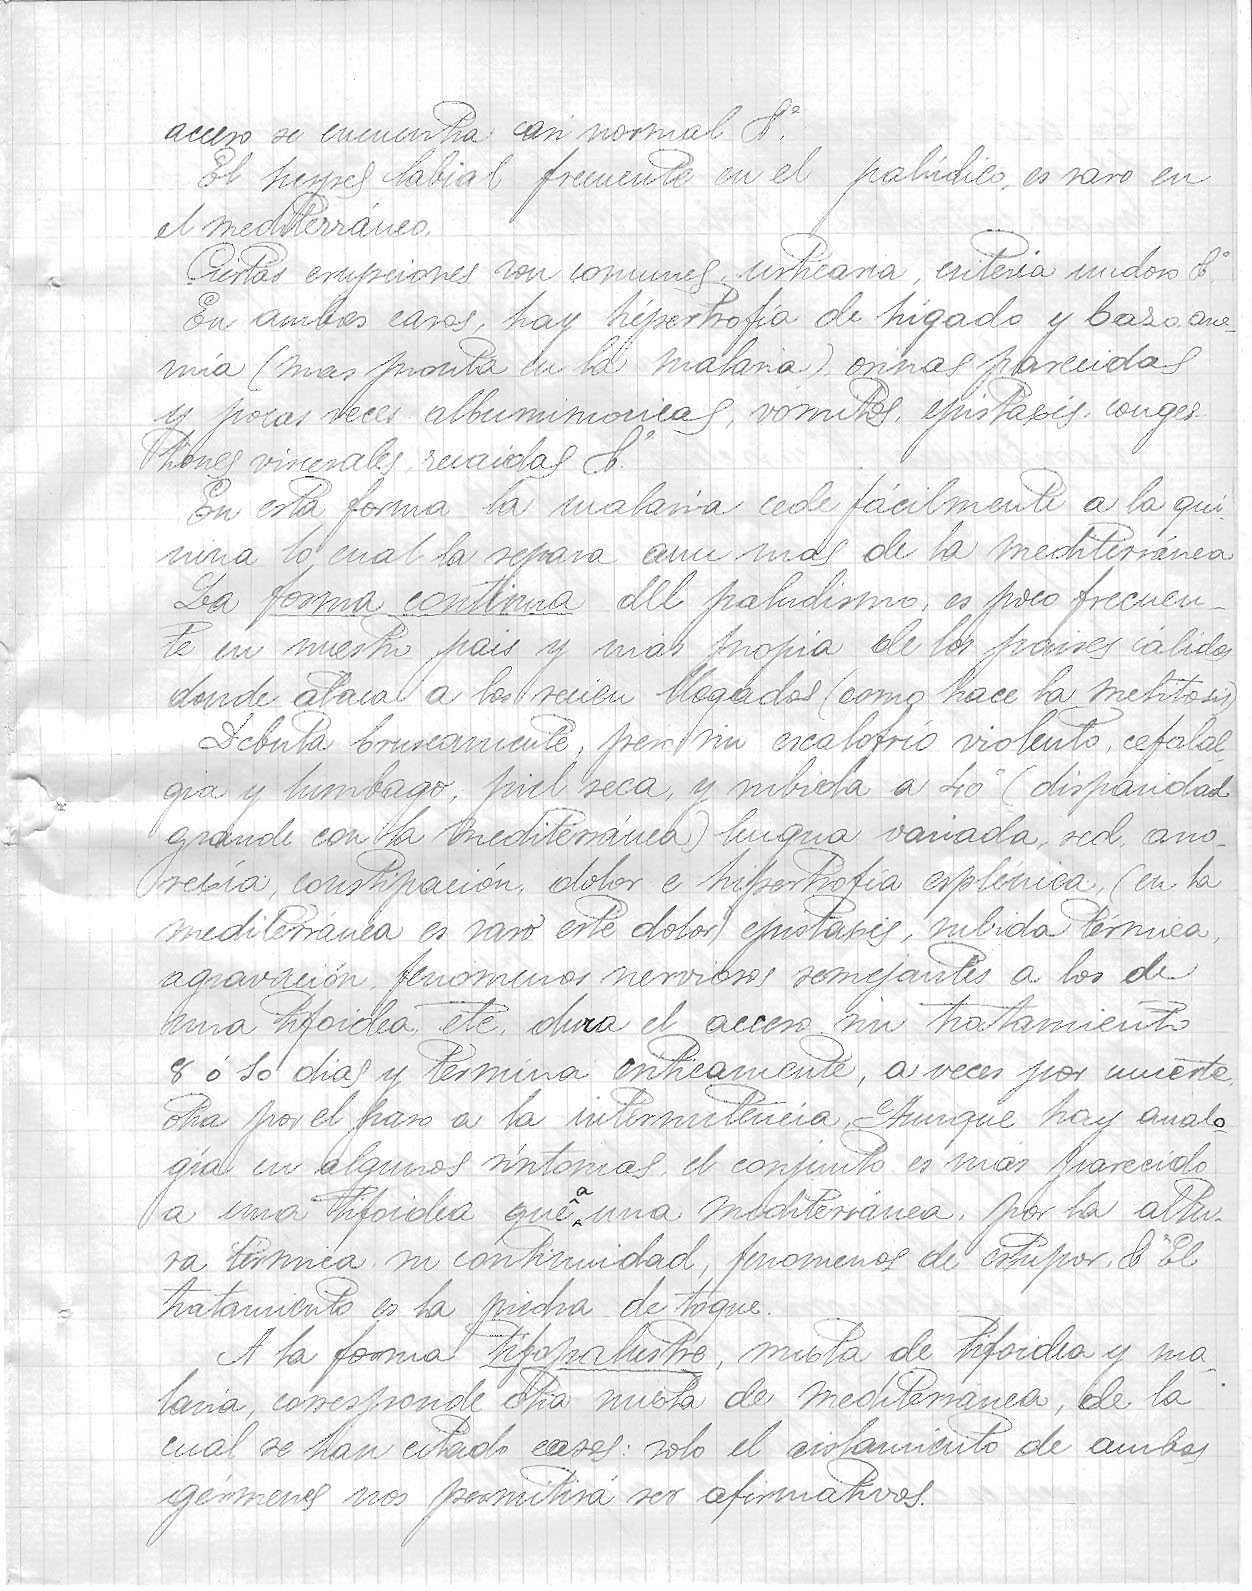 acceso se encuentra casi normal &ª.
El herpes labial frecuente en el palúdico, es raro en
el mediterráneo.
Ciertas erupciones son comunes, urticaria, eritema nudoso &ª.
En ambos casos, hay hipertrofia de hígado y bazo, ane-
mia (mas pronta en la malaria) orinas parecidas
y pocas veces albuminuricas, vomitos, epistaxis, conges-
tiones viscerales, recaidas &ª.
En esta forma la malaria cede fácilmente a la qui-
nina lo cual la separa aun mas de la mediterránea
La forma continua del paludismo, es poco frecuen-
te en nuestro pais y más propia de los paises cálidos
donde ataca a los recien llegados (como hace la melitosis)
Debuta bruscamente, pero sin escalofrío violento, cefalal-
gia y lumbago, piel seca, y subida a 40° (disparidad
grande con la mediterránea) lengua variada, sed, ano-
rexia, constipación, dolor e hipertrofia esplénica, (en la
mediterránea es raro este dolor) epistaxis, subida térmica,
agravación, fenómenos nerviosos semejantes a los de
una tifoidea, etc, dura el acceso sin tratamiento
8 ó 10 dias y termina criticamente, a veces por muerte,
otra por el paso a la intermitencia. Aunque hay analo-
gia en algunos síntomas, el conjunto es más parecido
a una tifoidea que a una mediterránea, por la altu-
ra térmica su continuidad, fenomenos de estupor, &ª El
tratamiento es la piedra de toque.
A la forma tifopalustre, mixta de tifoidea y ma-
laria, corresponde otra mixta de mediterránea, de la
cual se han citado casos: solo el aislamiento de ambos
gérmenes nos permitirá ser afirmativos.